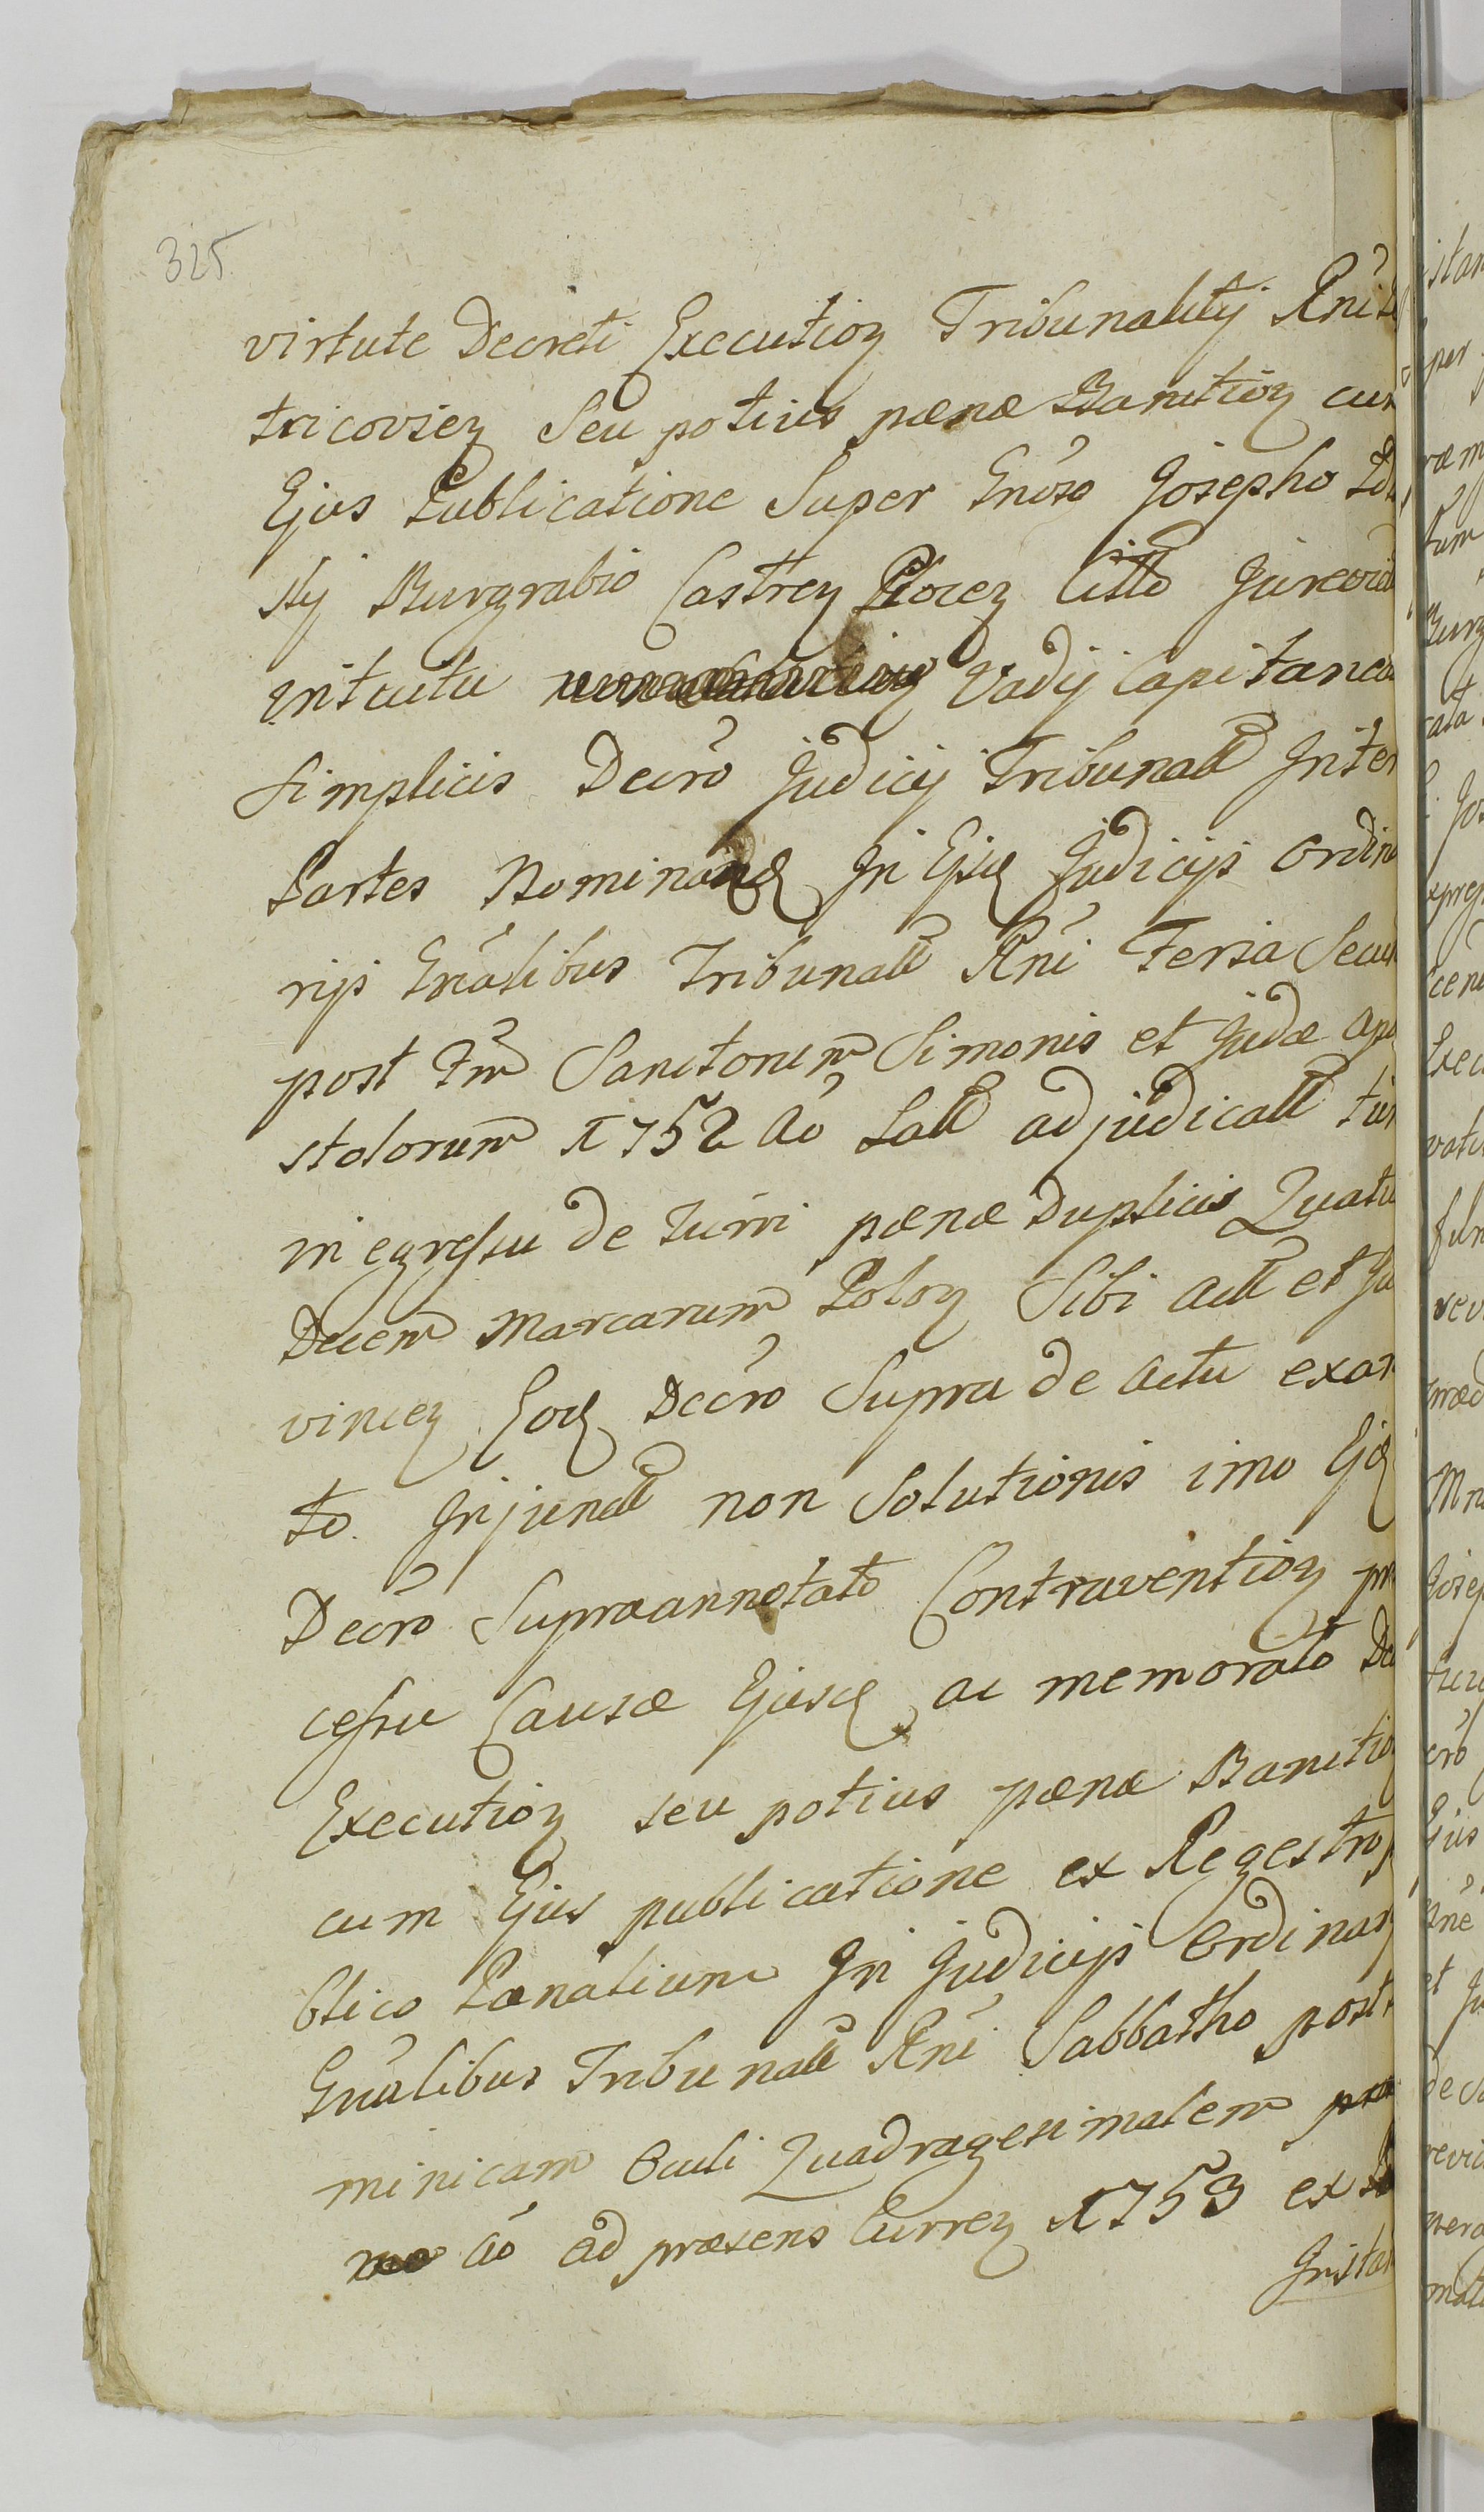 325
virtute Decreti Execution Tribunalitij Rni
tricovien Seu potius pænæ Banition cum
Ejus Publicatione Super Gnoso Josepho
skj Burgrabio Castren Plocen Citto
intuitu Vadij Capitanea
Simplicis Decro Judicij Tribunall Inter
Partes Nominand In Ejusd Judicijs Ordina
rijs Gnalibus Tribunall Rni Feria Secun
post Fm Sanctorum Simonis et Judæ Apo
stolorum 1752 Ao Lall adjudicall tur
in egressu de turri pænæ Duplicis Quatu
Decem Marcarum Polon Sibi Actt et Ju
vincen Eod Decro Supra de actu exar
to Injunctt non Solutionis imo Ejd
Decro Supraannotato Contravention pro
cessu Causæ Ejusd ac memorato De
Execution seu potius pænæ Banitio
cum Ejus publicatione ex Regestro
blico Pænalium In Judicijs Ordinar
Gnalibus Tribunall Rni Sabbatho post
minicam Oculi Quadragesimalem
Ao ad præsens Curren 1753 ex
Instan